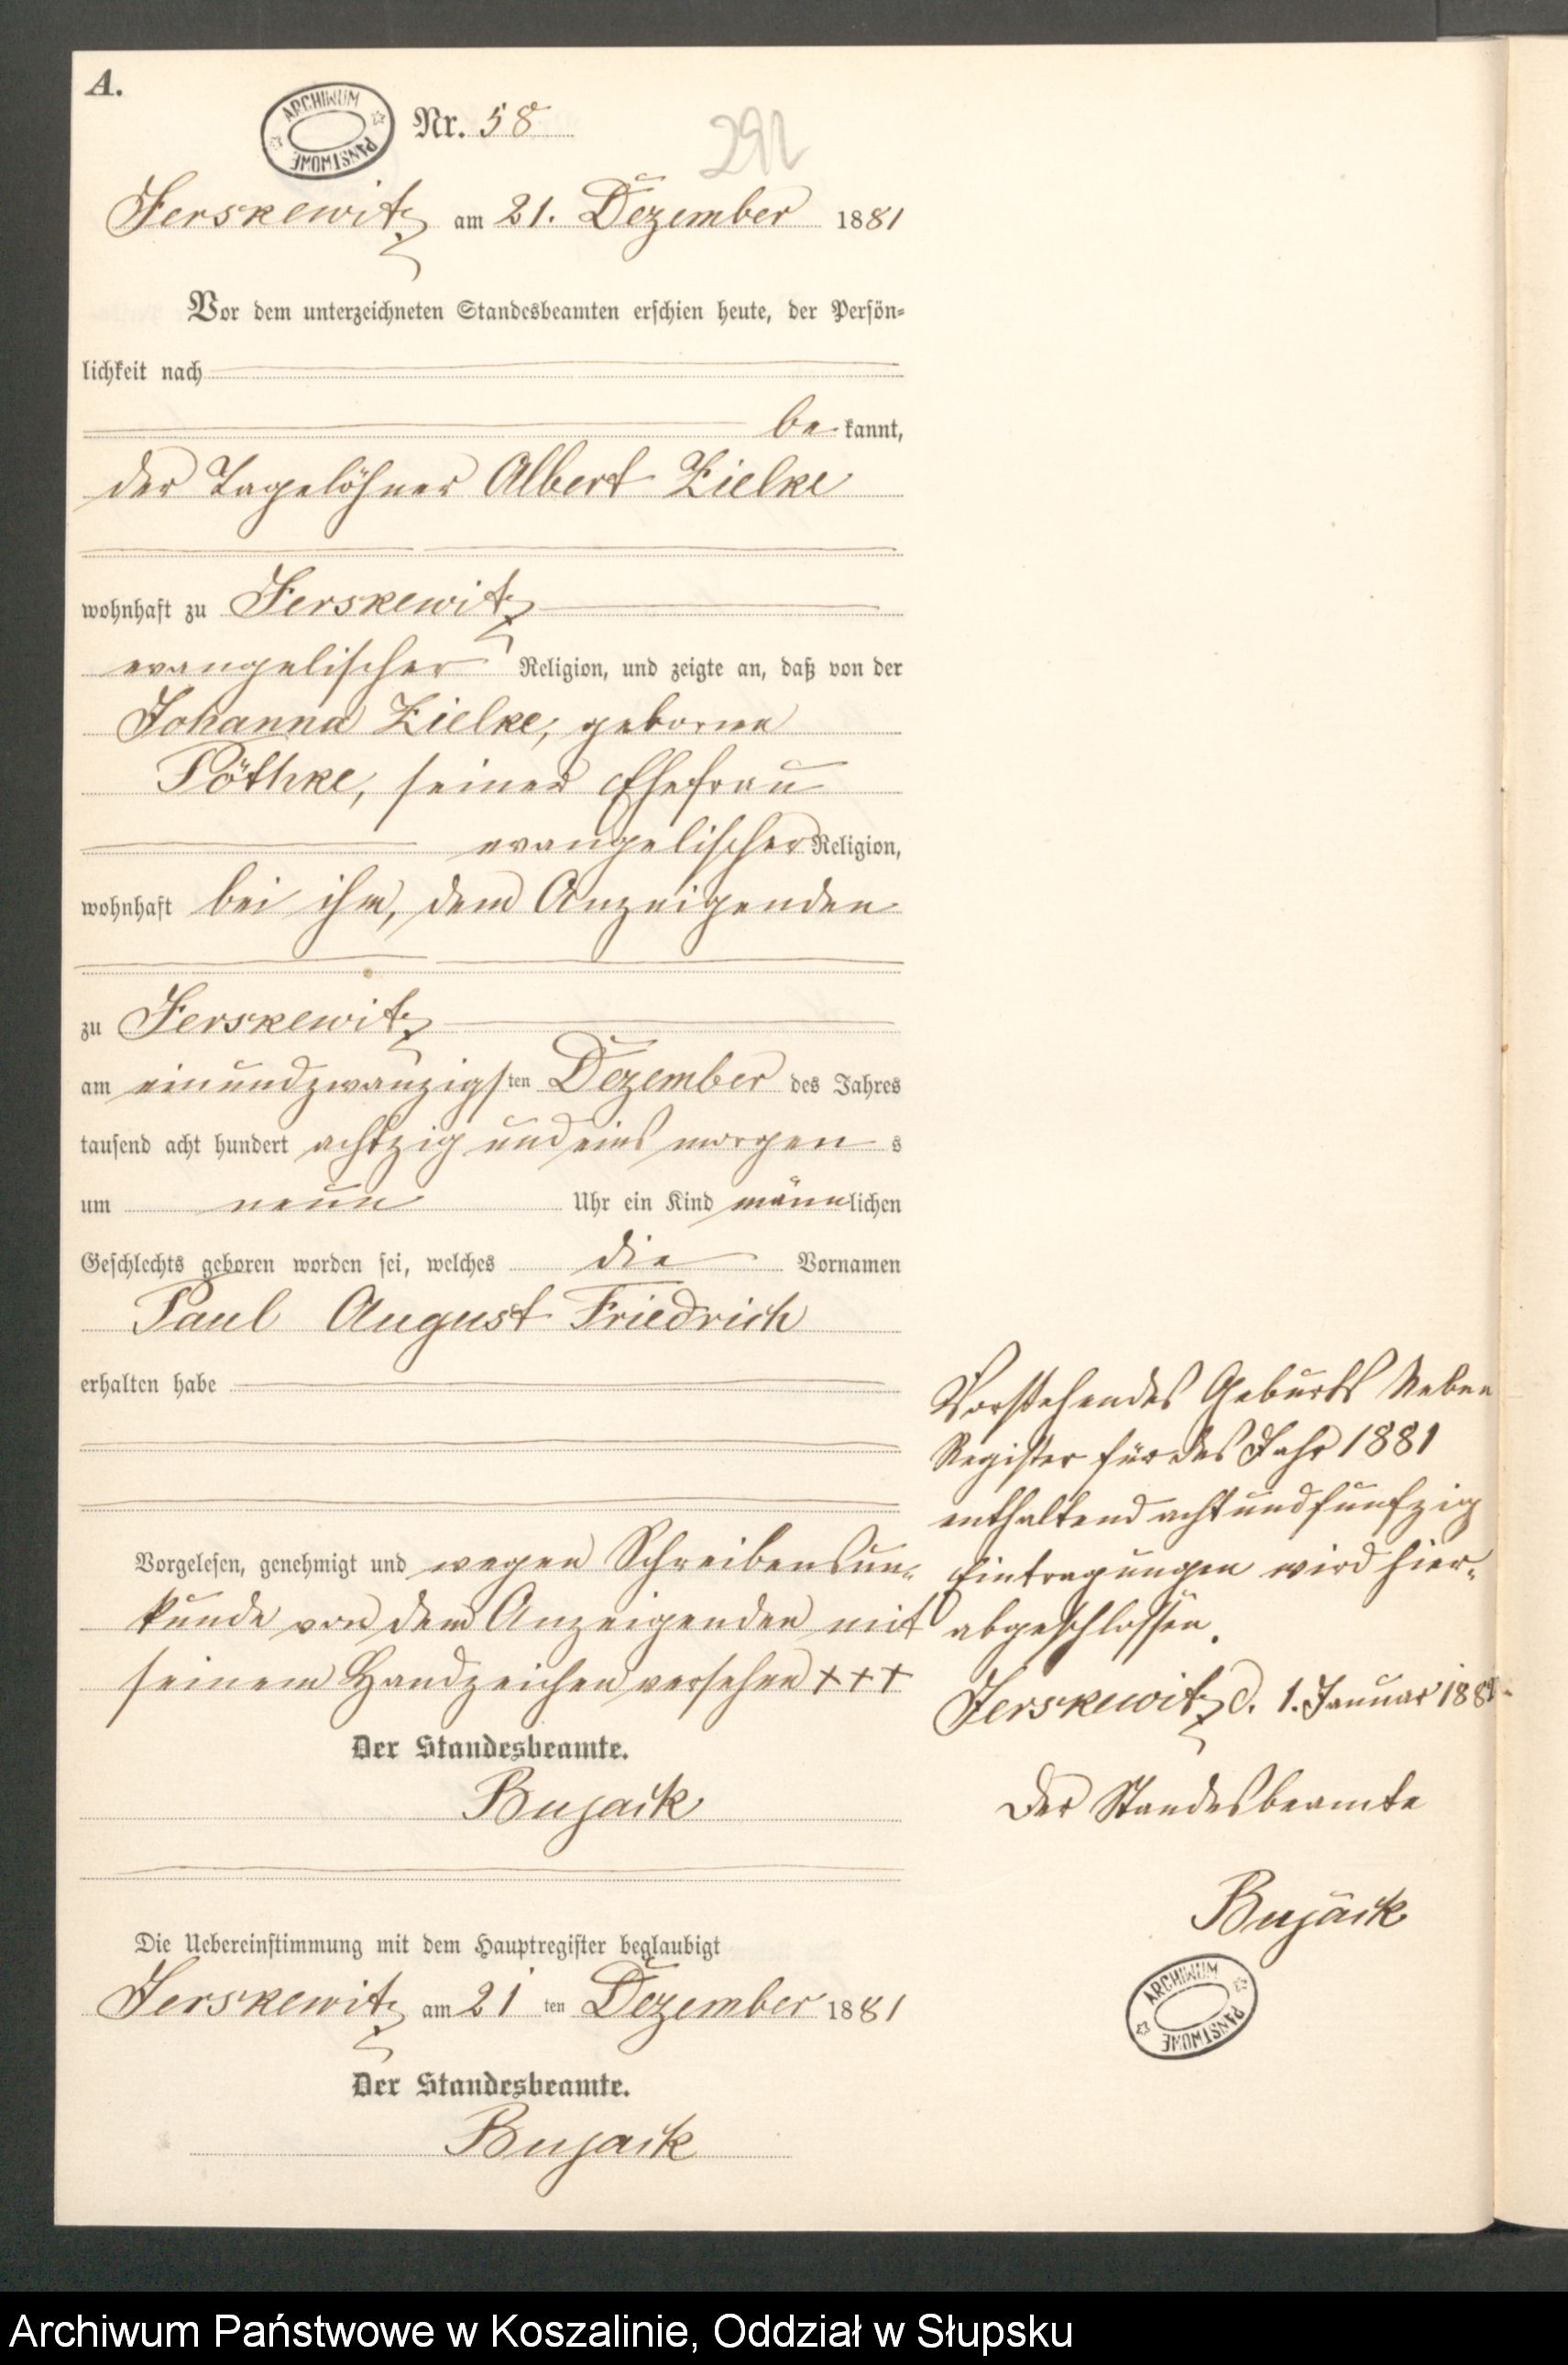 A.
ARCHIWUM PAŃSTWOWE
Nr. 58
Jerskewitz am 21. Dezember 1881
Vor dem unterzeichneten Standesbeamten erschien heute, der Persön-
lichkeit nach
be kannt,
der Tagelöhner Albert Zielke
wohnhaft zu Jerskewitz
evangelischer Religion, und zeigte an, daß von der
Johanna Zielke, geborne
Pöthke, seiner Ehefrau
evangelischer Religion,
wohnhaft bei ihm, dem Anzeigenden
zu Jerskewitz
am einundzwanzigsten Dezember des Jahres
tausend acht hundert achtzig und eins morgen s
um neun Uhr ein Kind männlichen
Geschlechts geboren worden sei, welches die Vornamen
Paul August Friedrich
erhalten habe
Vorgelesen, genehmigt und wegen Schreibensun-
kunde von dem Anzeigenden mit
seinem Handzeichen versehen +++
Der Standesbeamte.
Bujack
Die Uebereinstimmung mit dem Hauptregister beglaubigt
Jerskewitz am 21 ten Dezember 1881
Der Standesbeamte.
Bujack
Vorstehendes Geburts Neben
Register für das Jahr 1881
enthaltend achtundfunfzig
Eintragungen wird hier-
abgeschlossen.
Jerskewitz d. 1. Januar
Der Standesbeamte
Bujack
ARCHIWUM PAŃSTWOWE
Archiwum Państwowe w Koszalinie, Oddział w Słupsku